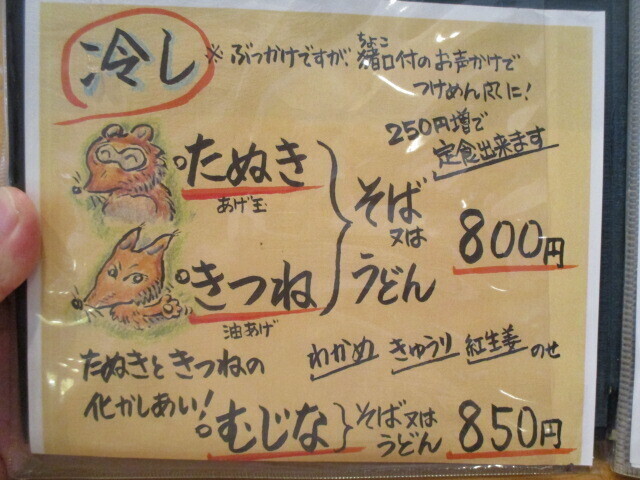 冷し
※ぶっかけですが、猪口付のお声かけで
ちょこ
つけめん風に!
250円増で
定食出来ます
たぬき
あげ玉
きつね
油あげ
そば
又は
うどん
800円
わかめ きゅうり 紅生姜 のせ
たぬきときつねの
化かしあい!
むじな
そば又は
うどん
850円